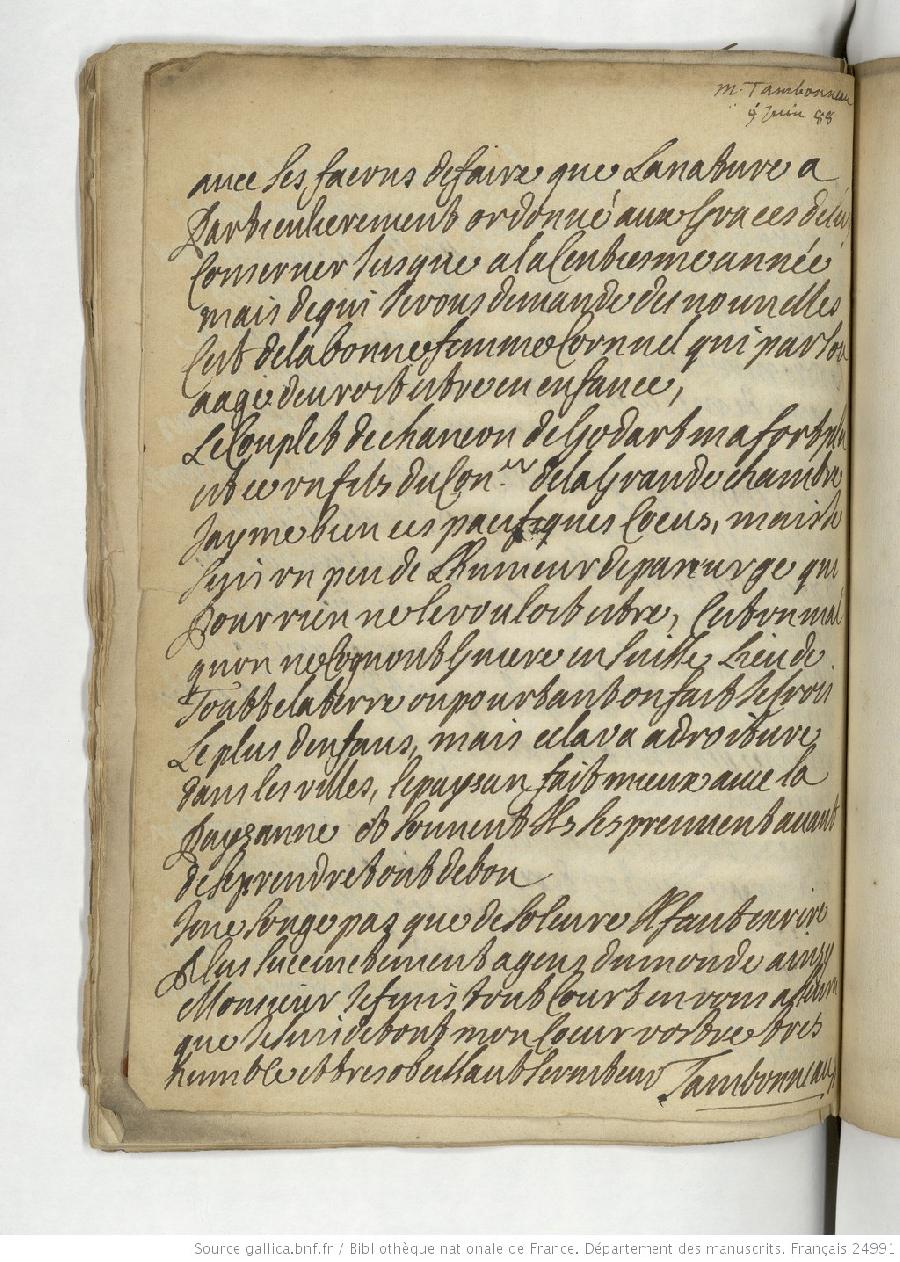 M. Tambonneau
9 juin 88
avec les facons de faire que La nature a
Particulierement ordonné aux Graces de les
Conserver Jusque a la Centiesme année
mais de qui Je vous demande des nouvelles
C'est de la bonne femme Cornuel qui par son
aage devroit estre en enfance,
Le Couplet de chancon de Godart ma fort plu
est ce un fils du Con.er de la Grande chambre
J'ayme bien ces pacifiques Cocus, mais Je
suis un peu de L'humeur de panurge qui
Pour rien ne le vouloit estre, C'est un mal
quon ne Cognoit Guiere en Suisse Lieu de
Toutte la terre ou pourtant on fait Je croi
Le plus d'enfans, mais cela va a droiture
dans les villes, le paysan fait mieux avec la
Payzanne et souvent Ils les prennent avant
de se prendre tout de bon
Je ne songe pas que de Soleure Il faut escrire
Plus succinctement a gens du monde ainsy
Monsieur Je finis tout Court en vous assurant
que Je suis de tout mon Coeur vostre tres
humble et tres obeissant serviteur Tambonneau
Source gallica.bnf.fr / Bibliothèque nationale de France. Département des manuscrits. Français 24991